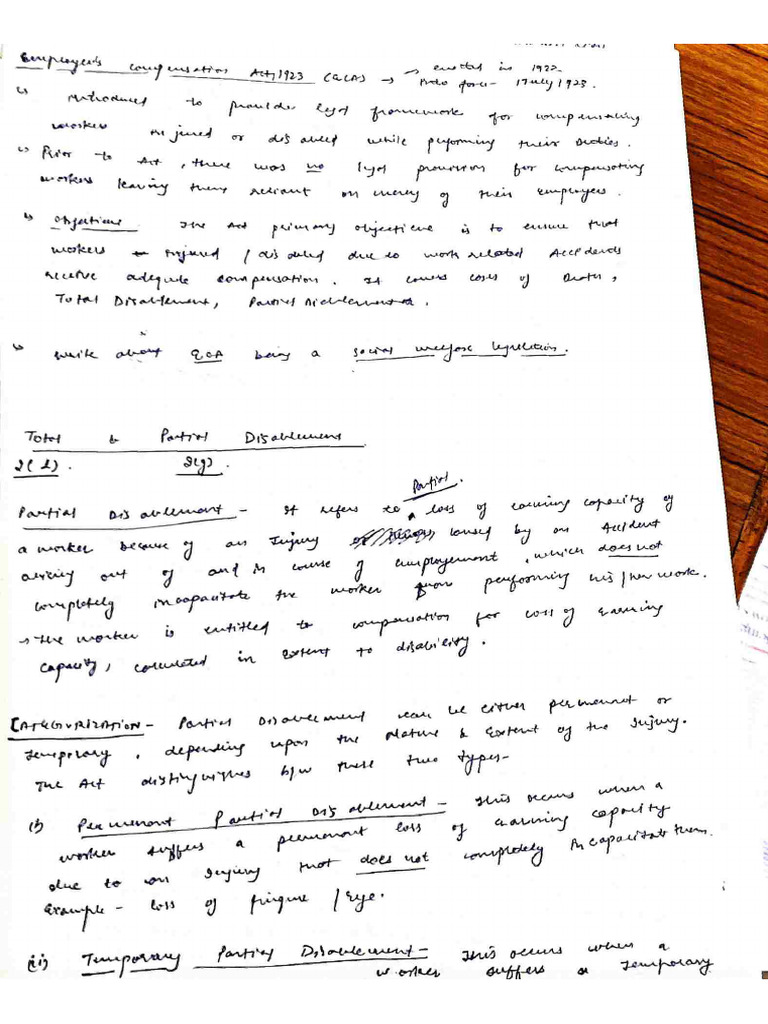 Employee's Compensation Act, 1923 (ECA) → enacted in 1922
Into force - 1 July 1923.
Introduced to provide legal framework for compensating
workers injured or disabled while performing their Duties.
Prior to Act, there was no legal provision for compensating
workers leaving them reliant on mercy of their employers.
Objective - The Act primary objective is to ensure that
workers Injured / disabled due to work related Accidents
receive adequate compensation. It covers cases of Death,
Total Disablement, Partial Disablement.
Write about ECA being a social welfare legislation.
Total & Partial Disablement
2(l). 2(g).
Partial Disablement - It refers to Partial loss of earning capacity of
a worker because of an Injury caused by an Accident
arising out of and in course of employement, which does not
completely incapacitate the worker from performing his/her work.
→ The worker is entitled to compensation for loss of Earning
capacity, calculated in Extent to disability.
CATEGORIZATION - Partial Disablement can be either permanent or
temporary, depending upon the Nature & Extent of the Injury.
The Act distinguishes b/w these two types -
(i) Permanent Partial Disablement - This occurs when a
worker suffers a permanent loss of earning capacity
due to an Injury that does not completely Incapacitate them.
Example - loss of fingure / Eye.
(ii) Temporary Partial Disablement - This occurs when a
worker suffers a Temporary